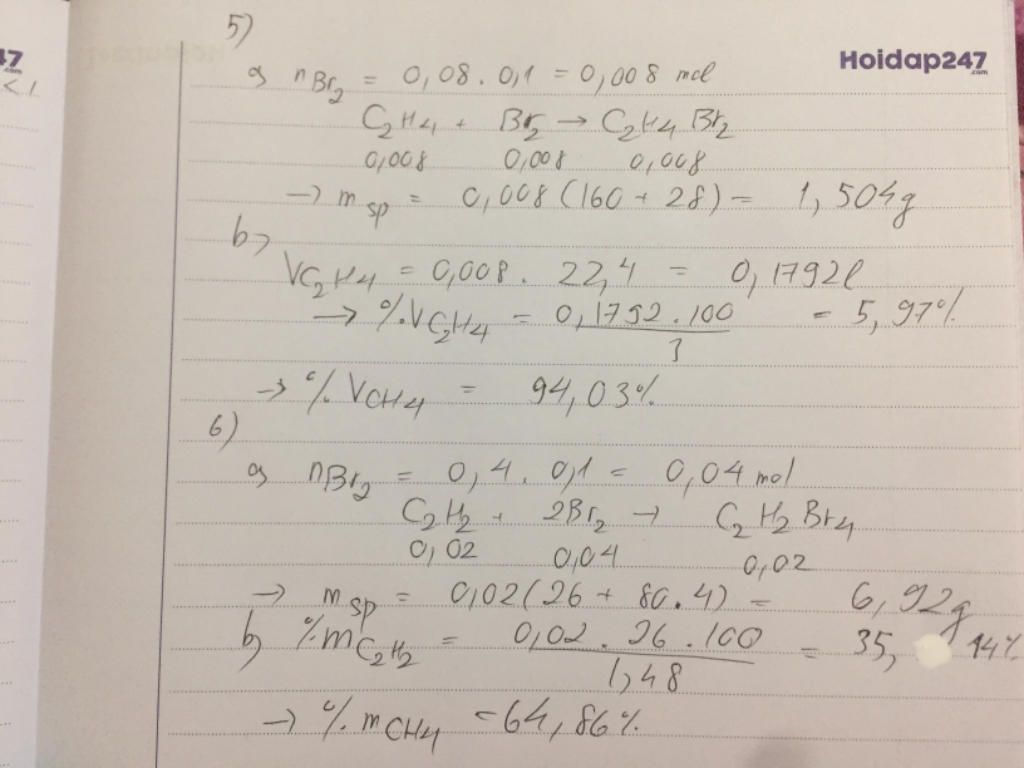 47
.com
< 1
5)
Hoidap247
.com
a) nBr2 = 0,08 . 0,1 = 0,008 mol
C2H4 + Br2 → C2H4Br2
0,008 0,008 0,008
→ msp = 0,008 (160 + 28) = 1,504g
b)
VC2H4 = 0,008 . 22,4 = 0,1792l
→ %VC2H4 = 0,1792 . 100 = 5,97%
3
→ %VCH4 = 94,03%
6)
a) nBr2 = 0,4 . 0,1 = 0,04 mol
C2H2 + 2Br2 → C2H2Br4
0,02 0,04 0,02
→ msp = 0,02 (26 + 80.4) = 6,92g
b) %mC2H2 = 0,02 . 26 . 100 = 35, 14%
1,48
→ %mCH4 = 64,86%